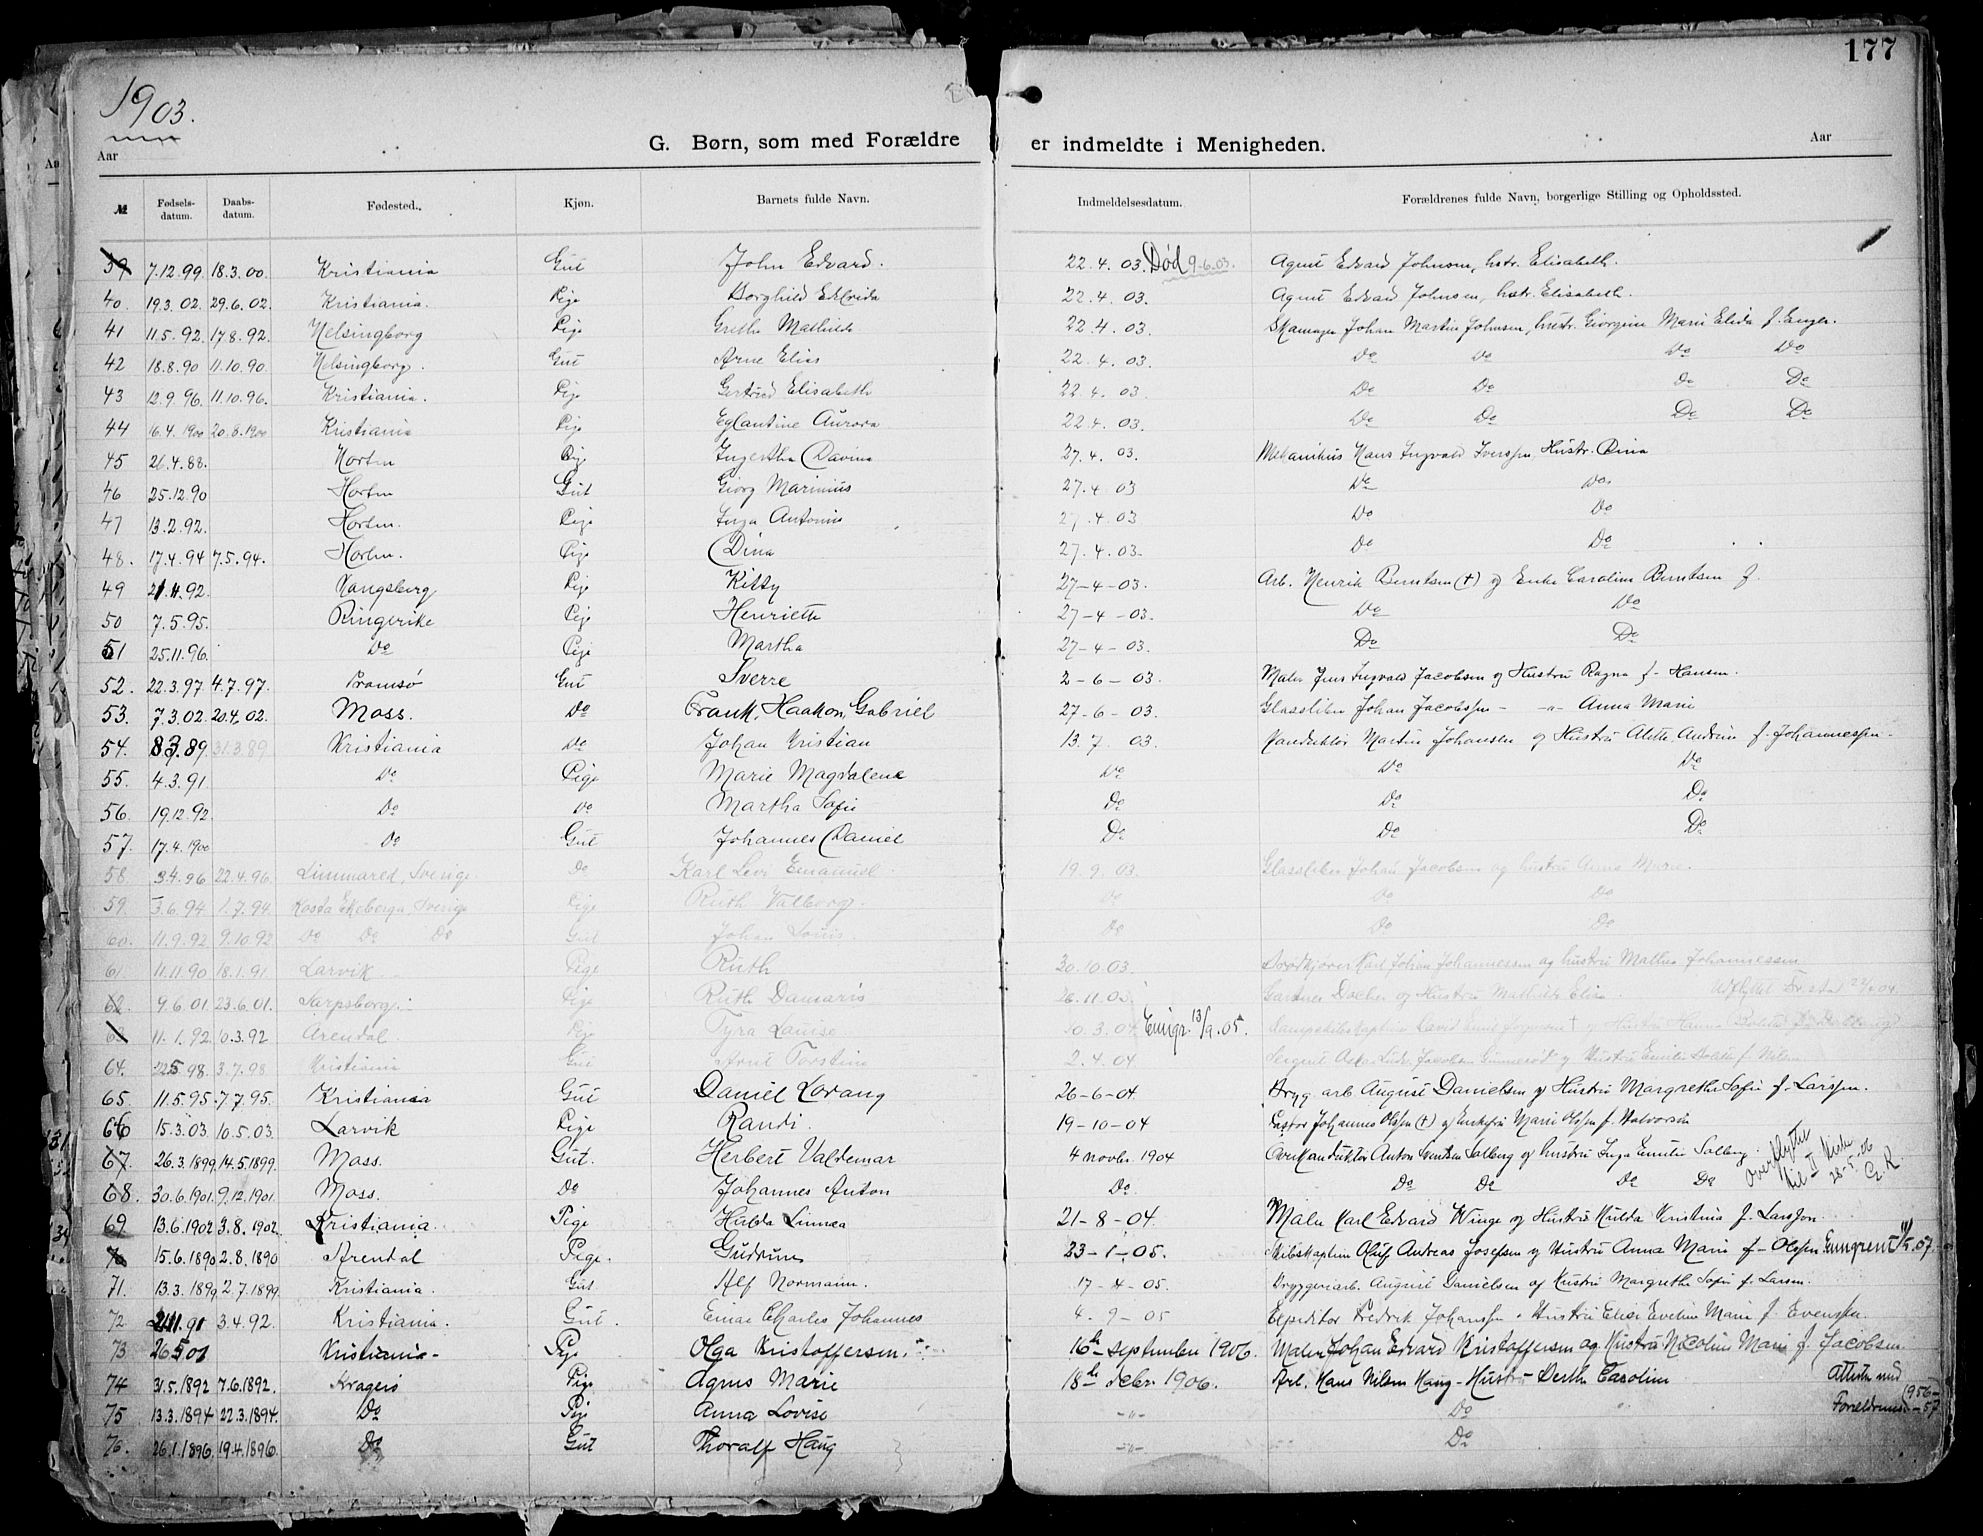 177
1903.
G. Børn, som med Forældre er indmeldte i Menigheden.
Aar Aar
№ Fødselsdatum. Daabsdatum. Fødested. Kjøn. Barnets fulde Navn. Indmeldelsesdatum. Forældrenes fulde Navn, borgerlige Stilling og Opholdssted.
39 7.12.99. 18.3.00. Kristiania Gut John Edvard. 22.4.03. Død 9-6.03. Agent Edvard Johnsen, hstr. Elisabeth.
40. 19.3.02. 29.6.02. Kristiania. Pige Borghild Elfrida 22.4.03. Agent Edvard Johnsen, hstr. Elisabeth.
41 11.5.92. 17.8.92. Helsingborg Pige Grethe Mathilde 22.4.03. Johan Martin Johnsen, hustr. Georgine Marie Elida f. Enger.
42 18.8.90 11.10.90. Helsingborg. Gut Arne Elias 22.4.03. Do Do Do Do
43 12.9.96. 11.10.96. Kristiania. Pige Gertrud Elisabeth 22.4.03. Do Do Do Do
44 16.4.1900 20.8.1900 Kristiania Pige Eglantine Aurora 22.4.03. Do Do Do Do
45 26.4.88. Horten Pige Ingertha Davina 27.4.03. Mekanikus Hans Ingvald Iverssen Hustr. Dina
46 25.12.90 Horten Gut Georg Marinius 27.4.03 Do Do
47 13.2.92. Horten. Pige Inga Antonie 27.4.03 Do Do
48. 17.4.94 7.5.94. Horten. Pige Dina 27.4.03. Do Do
49 21.11.92. Kongsberg Pige Kitty 27-4-03. Arb. Henrik Berntsen (†) og Enke Caroline Berntsen f.
50 7.5.95. Ringerike Pige Henriette 27-4-03. Do Do
51 25.11.96. Do Pige Martha 27-4-03. Do Do
52. 22.3.97. 4.7.97. Tromsø Gut Sverre 2-6-03. Maler Jens Ingvald Jacobsen og Hustru Ragna f. Hansen.
53. 7.3.02. 20.4.02. Moss. Do Frank, Haakon, Gabriel 27-6-03. Glassliber Johan Jacobssen - -"- Anna Marie
54. 8.3.89. 31.3.89. Kristiania Do Johan Kristian 13.7.03. Konduktør Martin Johansen og Hustru Alette Andrine f. Johannessen.
55. 4.3.91 Do Pige Marie Magdalene Do Do Do
56. 19.12.92. Do Do Martha Sofie Do Do Do
57. 17.4.1900 Do Gut Johannes Daniel Do Do Do
58. 3.4.96 22.4.96. Limmared, Sverige. Do Karl Levi Emanuel 19.9.03. Glassliber Johan Jacobsen og hustru Anna Marie.
59. 3.6.94 1.7.94. Kosta Ekeberga, Sverige Pige Ruth Valborg Do Do Do
60. 11.9.92 9.10.92 Do Do Do Gut Johan Louis. Do Do Do
61 11.11.90 18.1.91. Larvik Pige Ruth 20.10.03. Karl Johan Johannessen og hustru Mathea Johannessen
62. 4.6.01. 23.6.01. Sarpsborg. Pige Ruth Damaris 26.11.03. Gartner og Hustru Mathilde Elise.
11.1.92. 10.3.92 Arendal. Pige Tyra Louise 20.3.04 Emigr. 13/9.05.
64. 22.5.98. 3.7.98 Kristiania Gut Arne Torstein 2.4.04 Jacobsen og Hustru Emilie f. Nilsen
65. 11.5.95. 7.7.95. Kristiania Gut Daniel Lorang 26-6-04. Brygg. arb. August Danielsen og Hustru Margrethe Sofie f. Larssen.
66 15.3.03. 10.5.03. Larvik Pige Randi. 19-10-04 Pastor Johannes Olssen (†) og Enkefru Marie Olssen f. Halvorsen
67. 26.3.1899. 14.5.1899. Moss. Gut. Herbert Valdemar 4 novbr. 1904 Overkonduktør Anton Svendsen Solberg og hustru Inga Emilie Solberg. Overflyttet til II Kirke 28-5-06 G.R.
68. 30.6.1901. 9.12.1901. Moss. Do Johannes Anton Do. Do Do Do Do
69 13.6.1902 3.8.1902. Kristiania. Pige Hulda Linnea 21-8-04. Maler Karl Edvard Winge og Hustru Hulda Kristina f. Larsson.
70 15.6.1890 2.8.1890 Arendal Pige. Gudrun 23-1-05. Skibskaptein Oluf Andreas Josefsen og Hustru Anna Marie f. Olssen.
71. 13.3.1899 2.7.1899. Kristiania. Gut Alf Normann. 17-4-05. Bryggeriarb. August Danielsen og Hustru Margrethe Sofie f. Larsen.
72 21.11.91 3.4.92. Kristiania. Gut. Einar Charles Johannes 4-9-05 Expeditør Fredrik Johanssen Hustru Elise Eveline Marie f. Evenssen.
73 26.5.01 Kristiania- Pige Olga Kristoffersen. 16de september 1906. Maler Johan Edvard Kristoffersen og Hustru Nicoline Marie f. Jacobsen.
74 31.5.1892 7.6.1892. Kragerø Pige Agnes Marie 18de debr. 1906. Arb. Hans Nilsen Haug - Hustru Berthe Caroline
75 13.3.1894 22.3.1894. Do Pige Anna Lovise -"- Do
76. 26.1.1896. 19.4.1896. Do Gut Thoralf Haug -"- Do
Attester med Forældrenes 1956-57